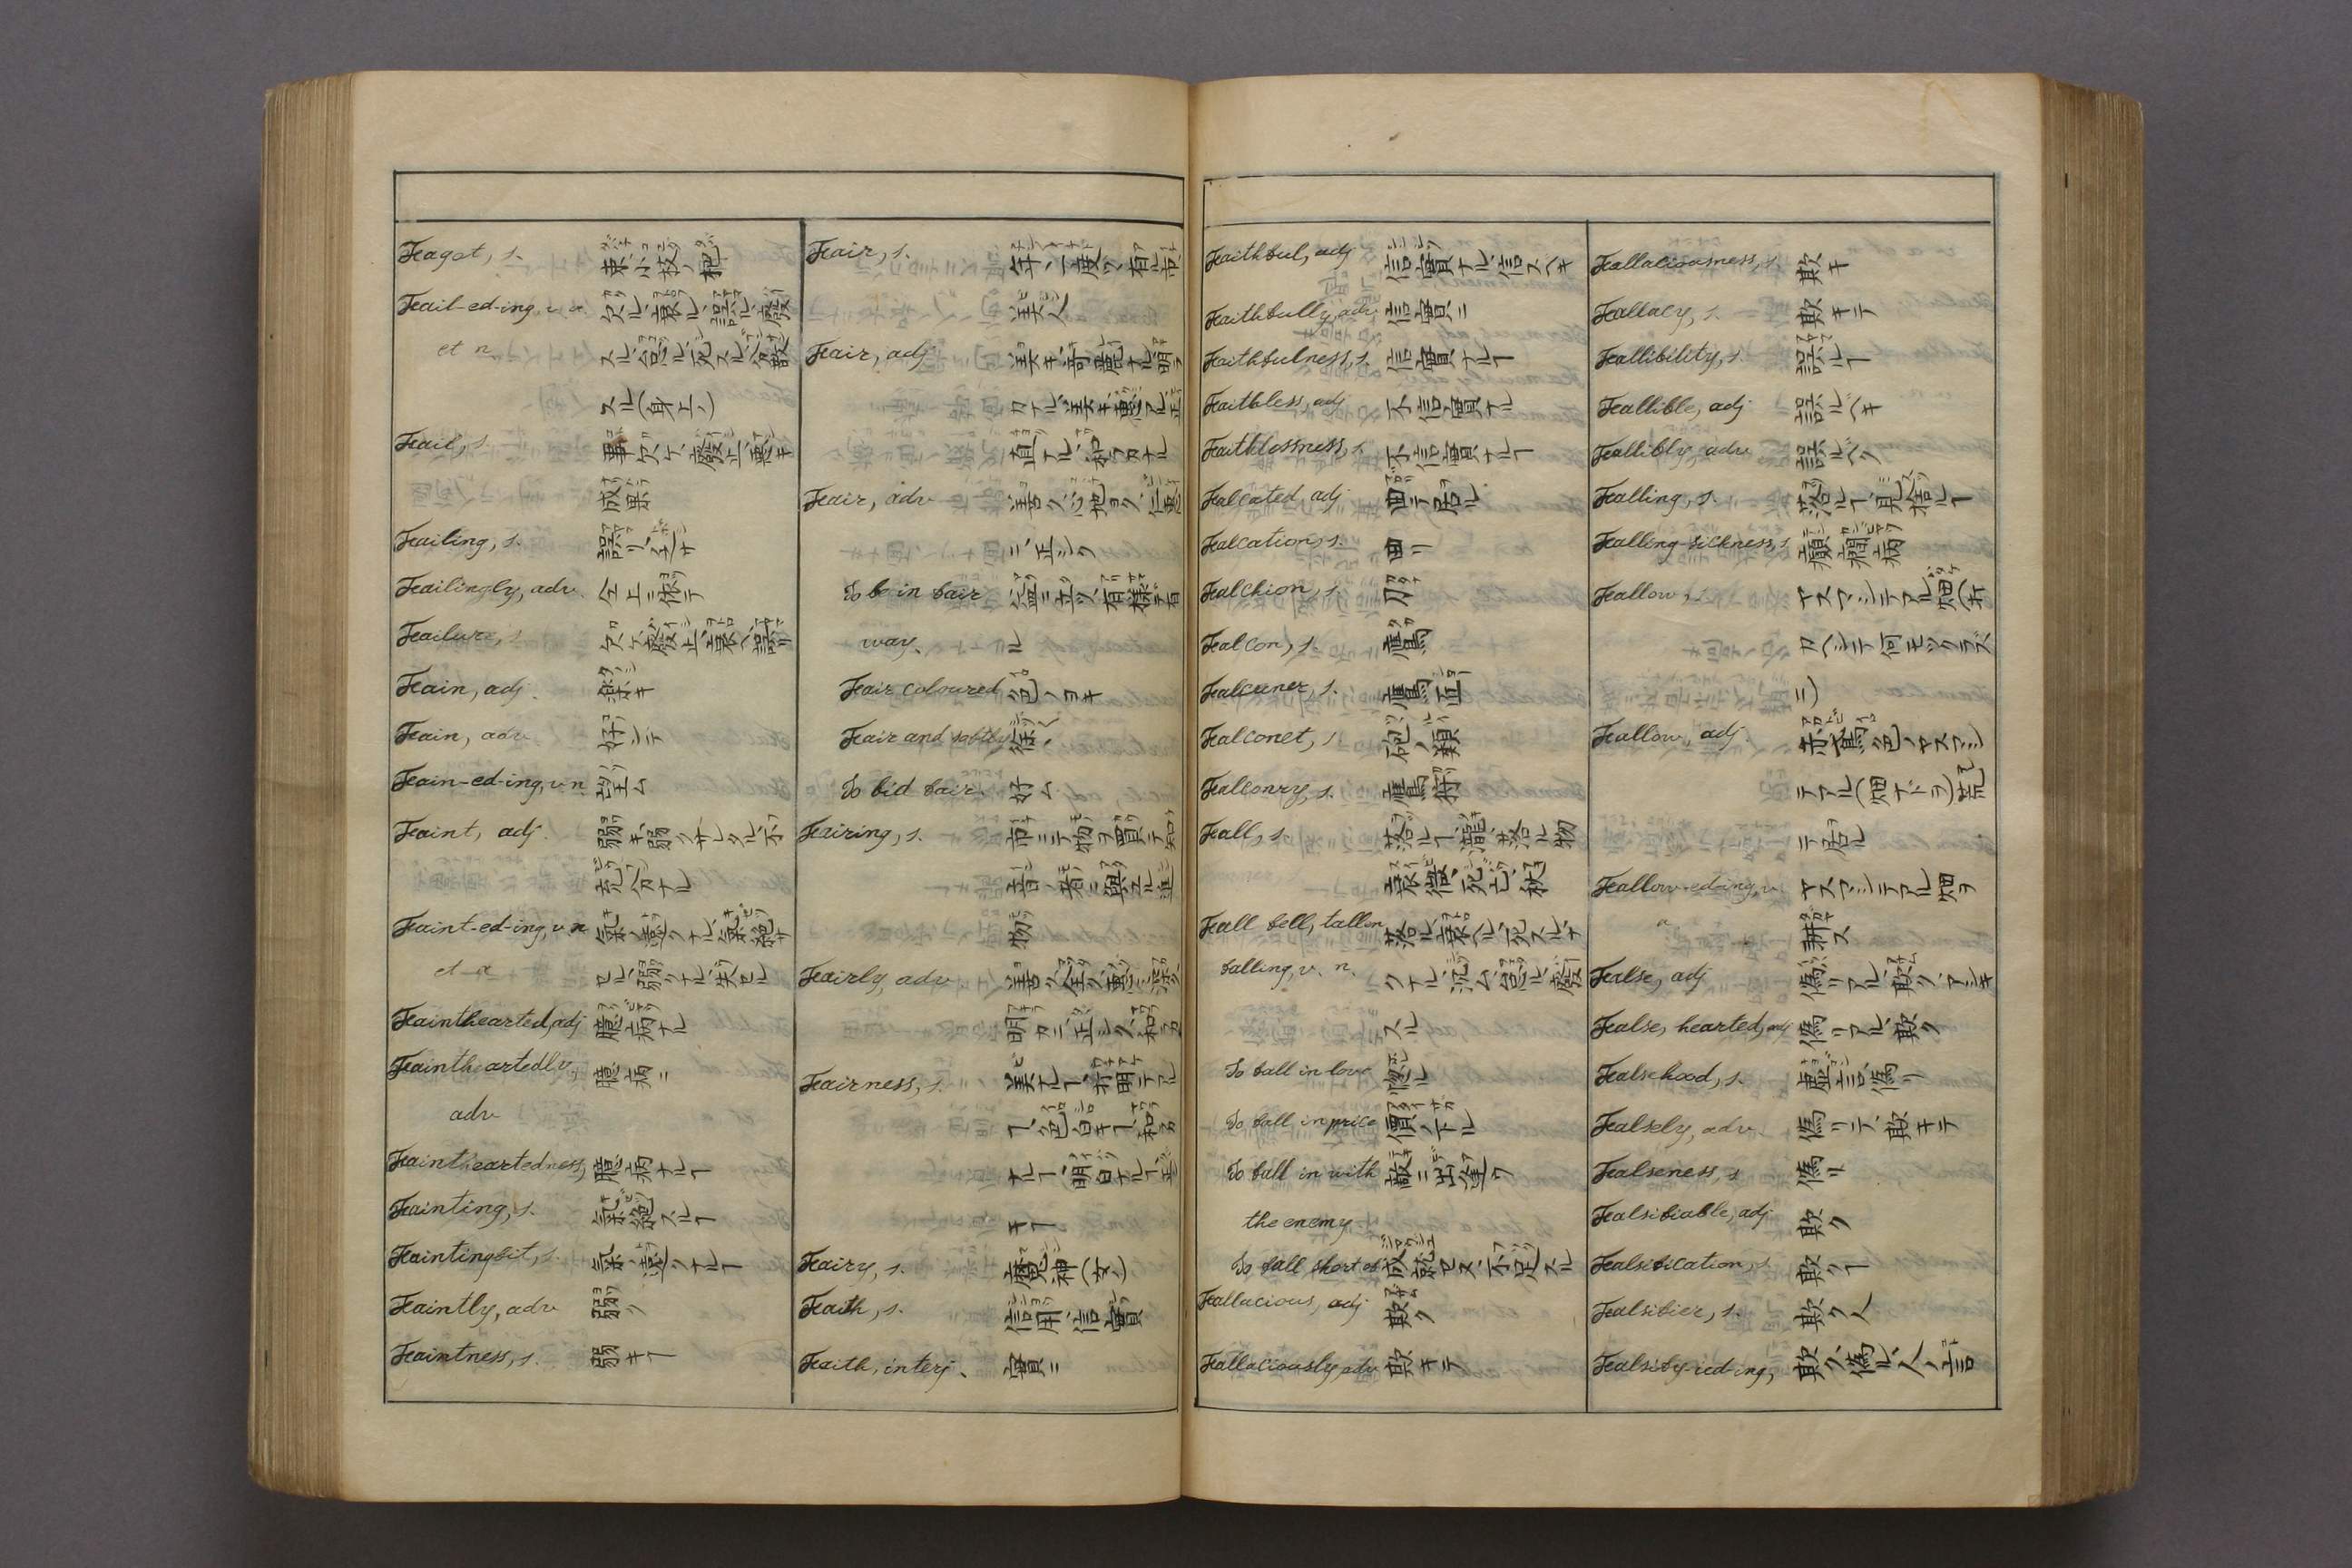 Fagot, s. 束小枝ノ把
Fail-ed-ing, v a 欠ル、衰ル、誤ル、廢
et n スル、怠ル、死スル、分散
スル(身上ノ)
Fail, s. 事欠ケ、廢止、悪キ
成果
Failing, s. 誤リ、
Failingly, adv. 仝上ニ依テ
Failure, s 欠ケ、廢止、衰ヘ、誤リ
Fain, adj. 欲キ
Fain, adv 好ンテ
Fain-ed-ing, v n. 望ム
Faint, adj. 弱キ、弱クサレタル、不
充分ナル
Faint-ed-ing, v n 氣ノ遠クナル、氣絶サ
et a セル、弱クナル、失セル
Fainthearted, adj 臆病ナル
Faintheartedly, 臆病ニ
adv
Faintheartedness, 臆病ナルヿ
Fainting, s. 氣絶スルヿ
Faintingfit, s. 氣ノ遠クナルヿ
Faintly, adv 弱ク
Faintness, s. 弱キヿ
Fair, s. 年ニ一度ツヽ有ル市
美人
Fair, adj 美キ、奇麗ナル、明ラ
カナル、美キ、恵アル、正
直ナル、和ラカナル
Fair, adv 善ク、心地ヨク、仁恵
ニ、正シク
To be in fair 益ニ立ツ、有様ニ有
way. ル
Fair coloured 色ノヨキ
Fair and softly 徐々
To bid fair. 好ム
Fairing, s. 市ニテ物ヲ買テ知ル
音ノ者ニ與エル進
物
Fairly, adv 善ク、全ク、恵ミ深ク、
明カニ、正シク、和ラカ
Fairness, s. 美ナルヿ、打明テアル
ヿ、色白キヿ、和ラカ
ナルヿ、明白ナルヿ、正
キヿ
Fairy, s. 魔神(女ノ)
Faith, s. 信用、信實
Faith, interj. 實ニ
Faithful, adj 信實ナル、信スヘキ
Faithfully, adv 信實ニ
Faithfulness, s. 信實ナルヿ
Faithless, adj 不信實ナル
Faithlessness, s. 不信實ナルヿ
Falcated, adj 曲テ居ル
Falcation, s. 曲リ
Falchion, s. 刀
Falcon, s. 鷹
Falconer, s. 鷹匠
Falconet, s 砲ノ類
Falconry, s. 鷹狩
Fall, s. 落ルヿ、瀧、落ル物
衰微、死亡、秋
Fall fell, fallen 落ル、衰ヘル、死スル、ナ
falling, v. n. クナル、沉ム、怠ル、廢
スル
To fall in love 惚ル
To fall in price 價ノ下ル
To fall in with 敵ニ出逢フ
the enemy
To fall short of 成就セヌ、不足スル
Fallacious, adj 欺ク
Fallaciously, adv 欺キテ
Fallaciousness, s. 欺キ
Fallacy, s. 欺キテ
Fallibility, s. 誤ルヿ
Fallible, adj 誤ルヘキ
Fallibly, adv 誤ルベク
Falling, s. 落ルヿ、見捨ルヿ
Falling-sickness, s 癲癇病
Fallow, s. ヤスマシテアル畑(打
カヘシテ何モツクラズ
ニ)
Fallow, adj. 赤鳶色ノ、ヤスマシ
テアル(畑ナドヲ)、荒
テ居ル
Fallow-ed-ing, v. ヤスマシテアル畑ヲ
a 耕ス
False, adj 偽リアル、欺ク、アシキ
False, hearted, adj 偽リアル、欺ク
Falsehood, s. 虚言、偽リ
Falsely, adv 偽リテ、欺キテ
Falseness, s 偽リ
Falsifiable, adj 欺ク
Falsification, s. 欺クヿ
Falsifier, s. 欺ク人
Falsify-ied-ing, 欺ク、偽ル、人ノ言